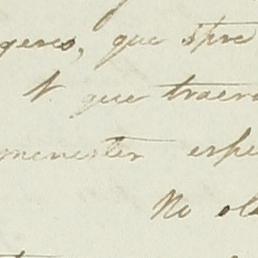 geros, que spre
N que traera
menester espe
No ol